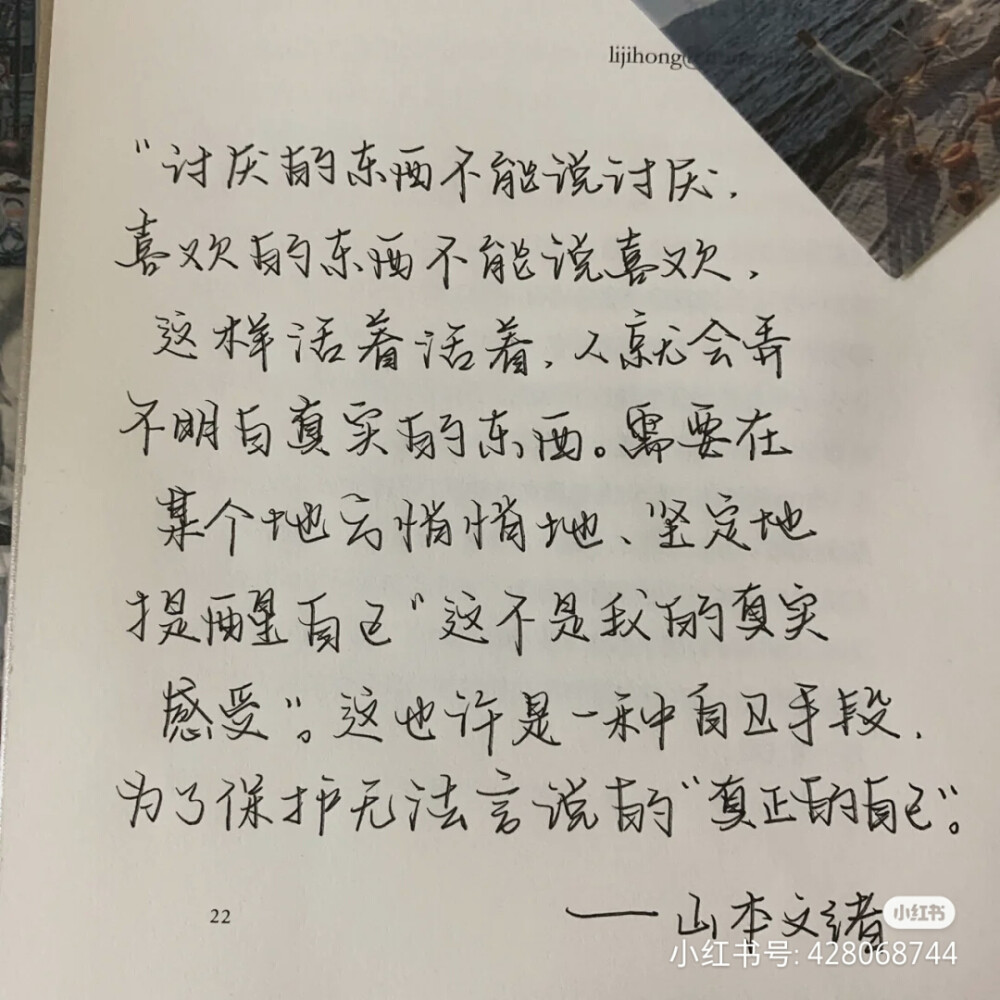 lijihong
“讨厌的东西不能说讨厌，
喜欢的东西不能说喜欢，
这样活着活着，人就会弄
不明白真实的东西。需要在
某个地方悄悄地、坚定地
提醒自己“这不是我的真实
感受”。这也许是一种自卫手段，
为了保护无法言说的“真正的自己”。
22
——山本文绪
小红书
小红书号: 428068744